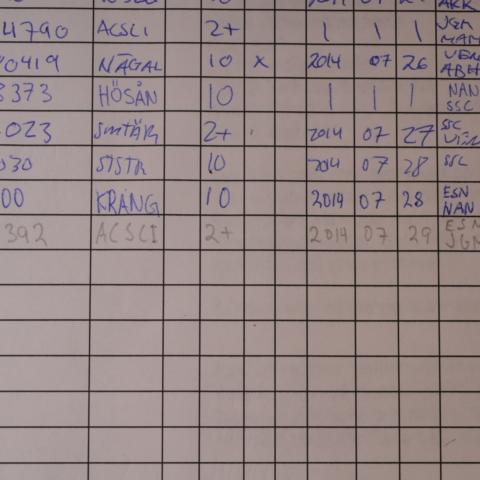 4790 ACSCI 2+ | | | JGM
MAM
0419 NÄGAL 10 X 2014 07 26 VEN
ABH
3373 HÖSÅN 10 | | | NAN
SSC
023 SMTÄR 2+ 2014 07 27 SSC
030 STSTR 10 2014 07 28 SSC
00 KRÅNG 10 2014 07 28 ESN
NAN
392 ACSCI 2+ 2014 07 29 ESN
JGM